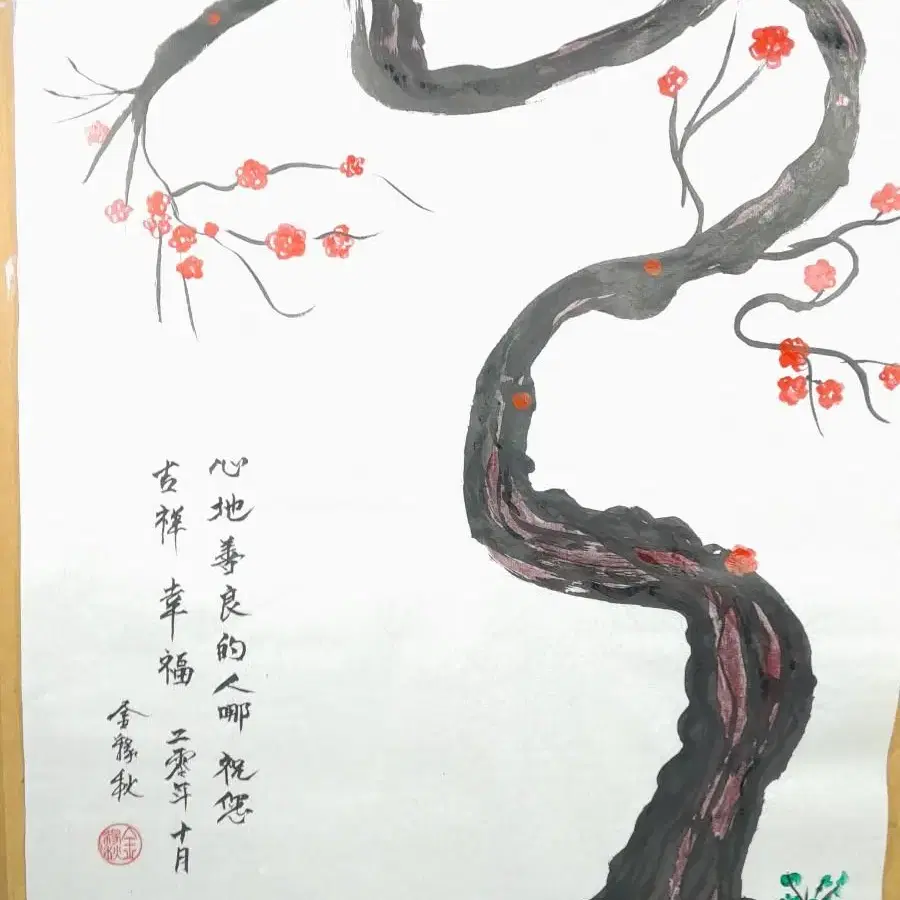 心地善良的人哪 祝您
吉祥幸福 二零年十月
金稼秋